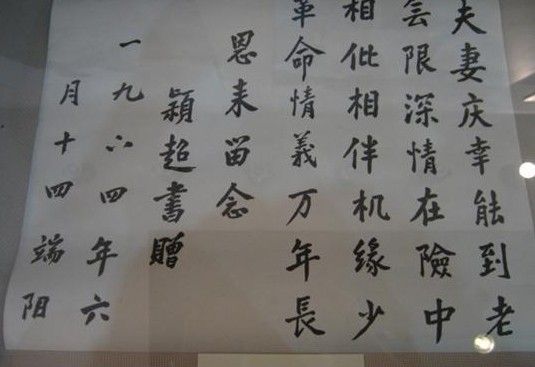 夫妻庆幸能到老
无限深情在險中
相依相伴机缘少
革命情義万年長
恩来留念
穎超書贈
一九六四年六
月十四端阳